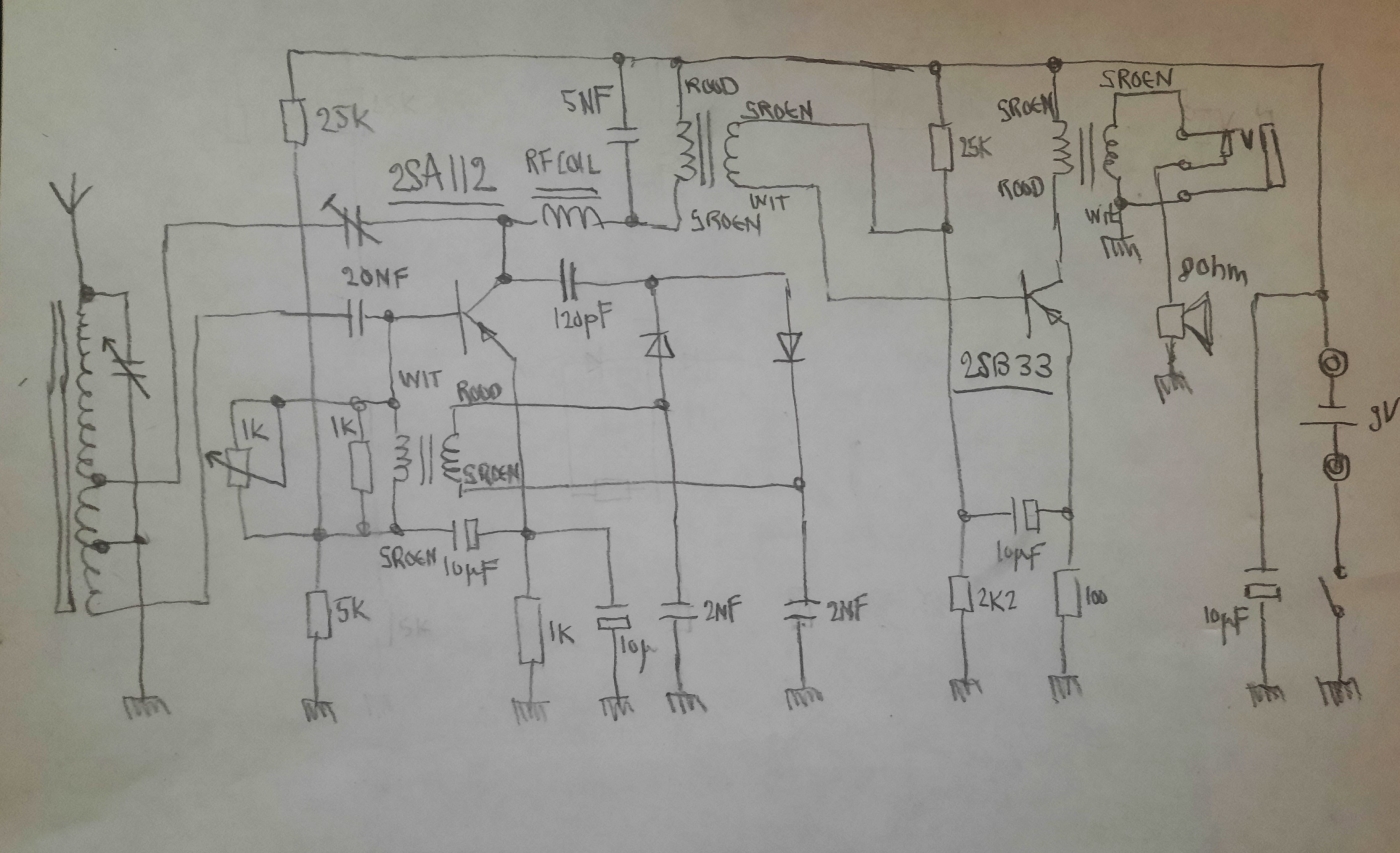 ROOD
SROEN
5NF
SROEN
SROEN
25K
25K
RFCOIL
2SA112
ROOD
WIT
SROEN
WIT
8Ohm
20NF
120pF
2SB33
WIT
ROOD
9V
1K
1K
SROEN
SROEN
10µF
10µF
5K
1K
10µ
2NF
2NF
2K2
100
10µF